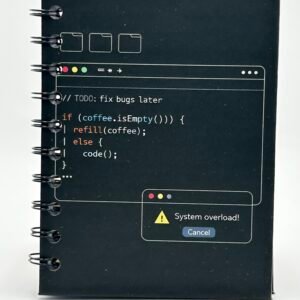 // TODO: fix bugs later
if (coffee.isEmpty())) {
| refill(coffee);
| else {
| code();
}
System overload!
Cancel